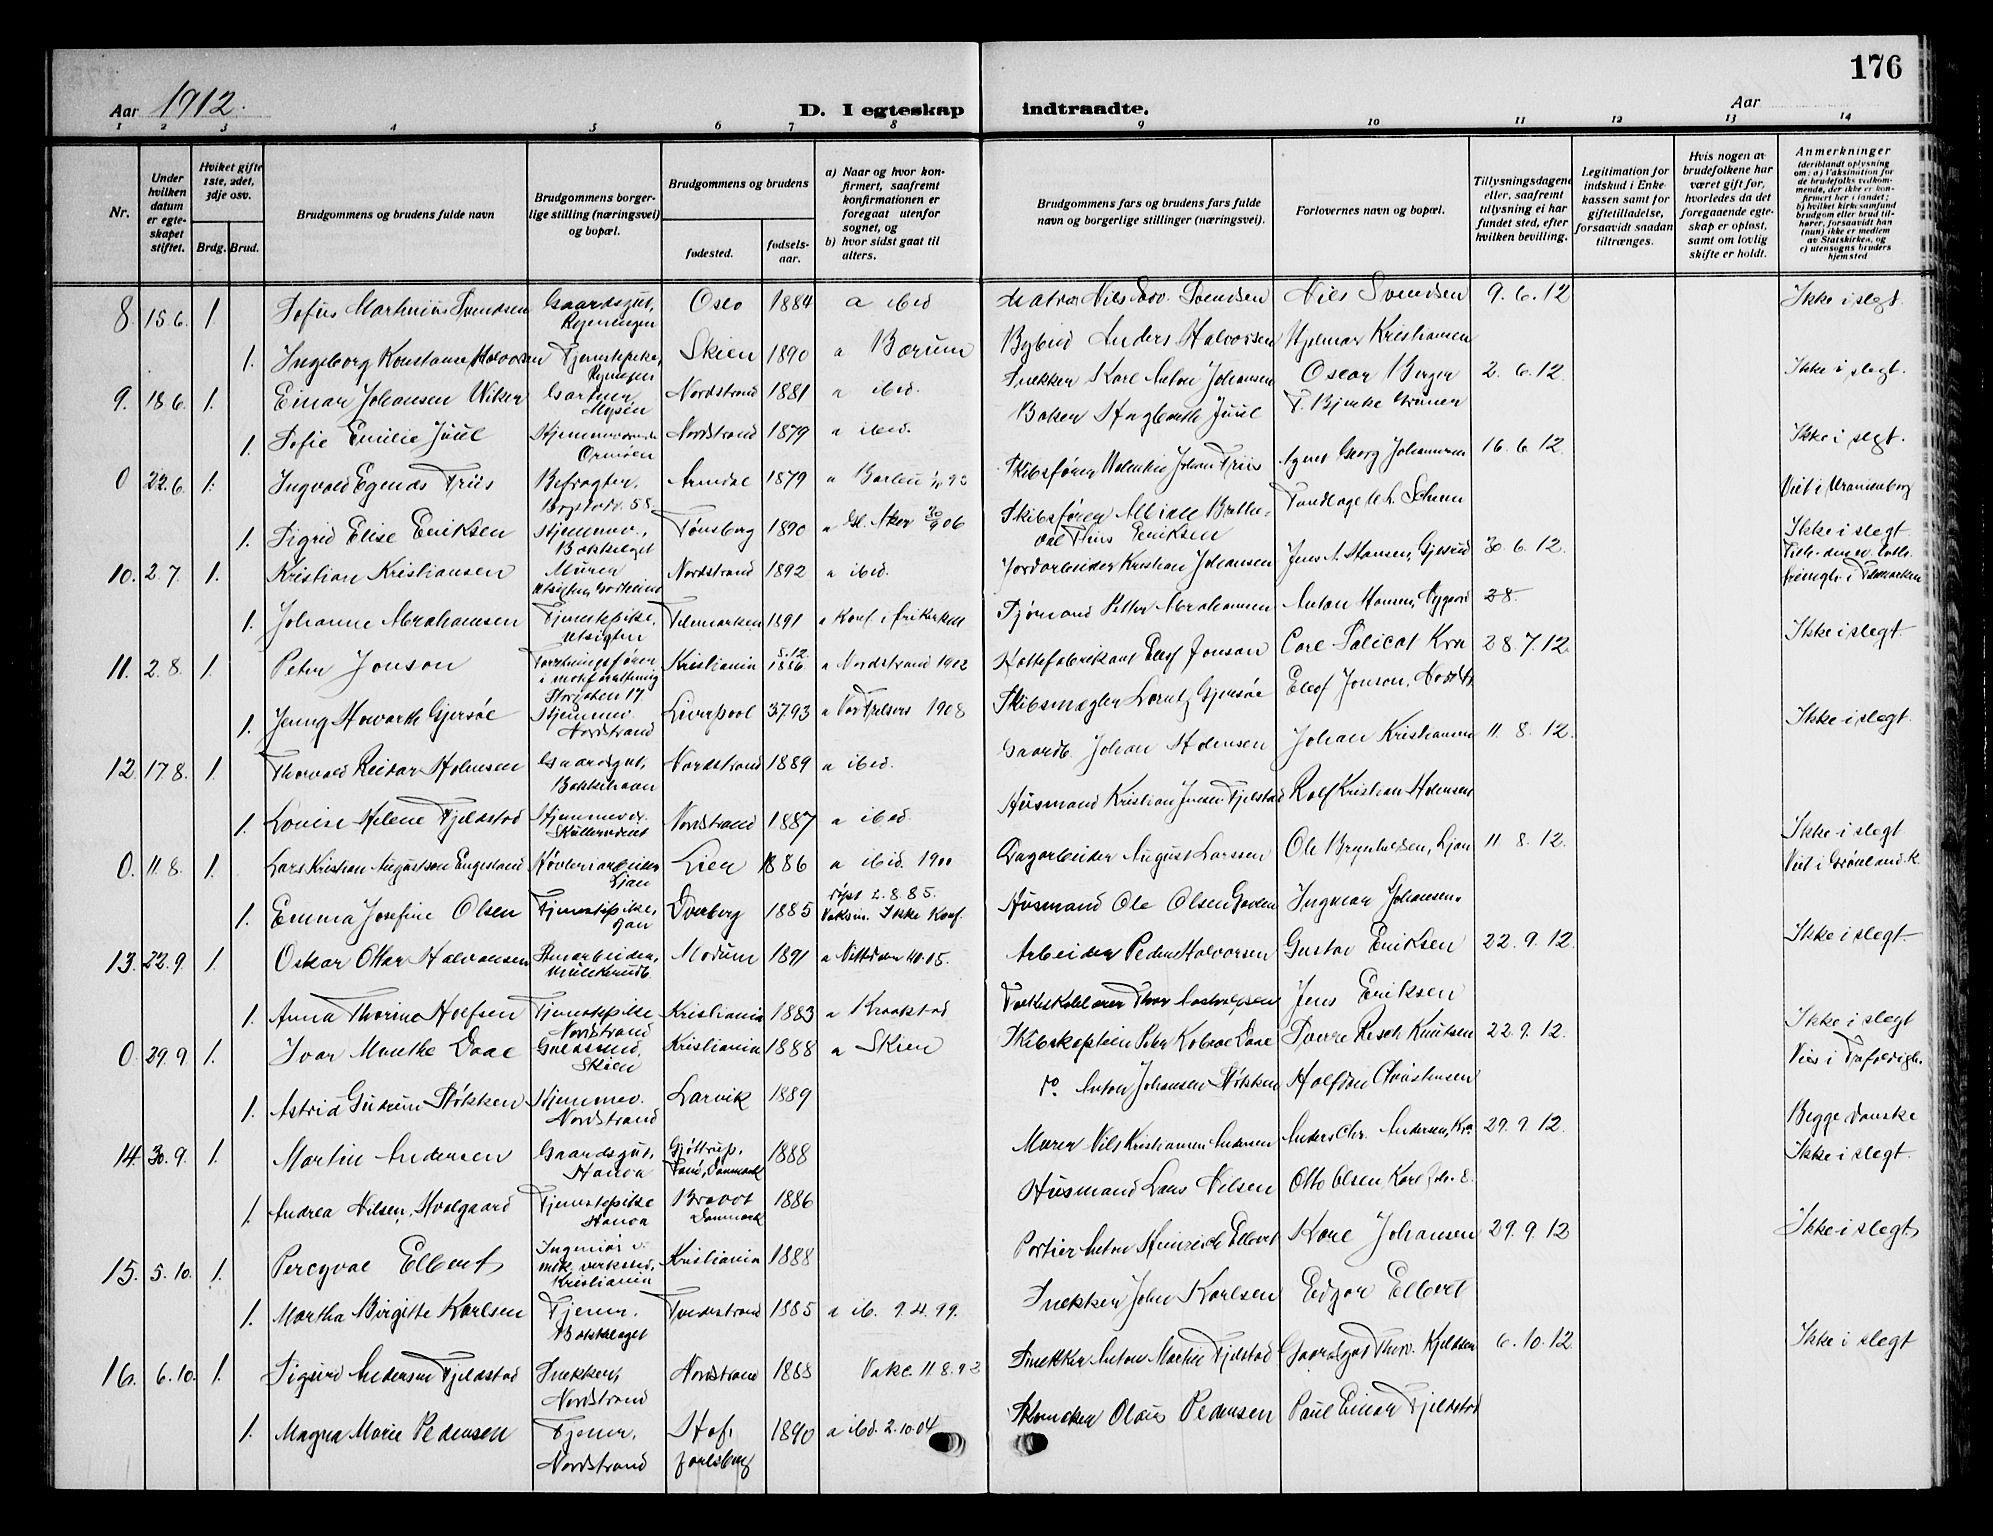 176
Aar 1912.
D. I egteskap indtraadte.
Aar
1 2 3 4 5 6 7 8 9 10 11 12 13 14
Nr.
Under hvilken datum er egteskapet stiftet.
Hvilket gifte 1ste, 2det, 3dje osv.
Brdg. Brud.
Brudgommens og brudens fulde navn
Brudgommens borgerlige stilling (næringsvei) og bopæl.
Brudgommens og brudens
fødested.
fødselsaar.
a) Naar og hvor konfirmert, saafremt konfirmationen er foregaat utenfor sognet, og
b) hvor sidst gaat til alters.
Brudgommens fars og brudens fars fulde navn og borgerlige stillinger (næringsvei).
Forlovernes navn og bopæl.
Tillysningsdagene eller, saafremt tillysning ei har fundet sted, efter hvilken bevilling.
Legitimation for indskud i Enkekassen samt for giftetilladelse, forsaavidt saadan tiltrænges.
Hvis nogen av brudefolkene har været gift før, hvorledes da det foregaaende egteskap er opløst, samt om lovlig skifte er holdt.
Anmerkninger (deriblandt oplysning om: a) Vaksination for de brudefolks vedkommende, der ikke er konfirmert her i landet; b) hvilket kirkesamfund brudgom eller brud tilhører, forsaavidt han (hun) ikke er medlem av Statskirken, og c) utensogns bruders hjemsted
8 15.6. 1. Sofus Martinius Svendsen Gaardsgut, Oslo 1884 a ibid Nils Edv. Svendsen Nils Svendsen 9.6.12 Ikke i slegt
1. Ingeborg Konstanse Halvorsen Tjenestepike, Skien 1890 a Bærum Bybud Anders Halvorsen Hjelmar Kristiansen
9. 18.6. 1. Einar Johansen Wiker Gartner, Mysen Nordstrand 1881 a ibid. Snekker Karl Anton Johansen Oscar Berger 2.6.12. Ikke i slegt.
1. Sofie Emilie Juul Ormøen Nordstrand 1879 a ibid. Baker Hagbarth Juul T. Bjerke
0 22.6. 1. Ingvald Egenæs Friis Befragter, 58 Arendal 1879 a Skibsfører Valentin Johan Friis Agent Georg Johannesen 16.6.12. Ikke i slegt. Viet i Uranienborg
1. Sigrid Elise Eriksen Hjemmev., Bækkelaget Tønsberg 1890 a Gl. Aker 30/9 06 Skibsfører Eriksen Tandlæge
10. 2.7. 1. Kristian Kristiansen Murer Nordstrand 1892 a ibid. Jordarbeider Kristian Johansen Jens A. Hansen, Gjersrud 30.6.12. Ikke i slegt
1. Johanne Abrahamsen Tjenestepike, Utsigten Telemarken 1891 a Konf. i frikirken Sjømand Petter Abrahamsen Anton Hansen, 28.
11. 2.8. 1. Peter Jonson Storgaten 17 Kristiania 5.12 1886 a Nordstrand 1902 Hattefabrikant Elof Jonson Carl Salicat Kra 28.7.12. Ikke i slegt.
1. Jenny Howarth Gjersøe Hjemmev. Nordstrand Liverpool 3.7.93 a Vor Frelsers 1908 Skibsmægler Lorentz Gjersøe Elof Jonson,
12 17.8. 1. Thorvald Reidar Holmsen Gaardsgut, Nordstrand 1889 a ibid. Gaardb. Johan Holmsen Johan Kristiansen 11.8.12. Ikke i slegt.
1. Lovise Helene Fjeldstad Hjemmev. Skullerudent Nordstrand 1887 a ibid. Husmand Kristian Jensen Fjelstad Rolf Kristian Holmsen
0. 11.8. 1. Lars Kristian Augustson Engesland Høvleriarbeider Ljan Lier 1886 a ibid. 1900 Dagarbeider August Larssen Ole Brynhildsen, Ljan 11.8.12. Ikke i slegt Viet i Grønland K.
1. Emma Josefine Olsen Tjenestepike, Ljan Dverberg 1885 døpt 2.8.85. Vaksin. Ikke Konf. Husmand Ole Olsen Ingvar Johansen.
13. 22.9. 1. Oskar Ottar Halvorsen Modum 1891 a Nittedalen Arbeider Peder Halvorsen Gustav Eriksen 22.9.12. Ikke i slegt.
1. Anna Thorine Tjenestepike Nordstrand Kristiania 1883 a Kraakstad Jens Eriksen
0. 29.9 1. Ivar Munthe Daae Guldsmed, Skien Kristiania 1888 a Skien Skibskaptein Peter Kobroe Daae Sverre Resch Knutsen 22.9.12. Ikke i slegt
1. Astrid Gudrun Støkken Hjemmev. Nordstrand Larvik 1889 do. Anton Johansen Støkken Halfdan Christensen
14. 30.9. 1. Martin Andersen Gaardsgut, Hauca Gjøttrup, Danmark 1888 Murer Nils Kristiansen Andersen Anders Chr. Andersen, Kra. 29.9.12. Begge danske Ikke i slegt.
1. Andrea Nilsen, Hvalgaard Tjenestepike Hauca Brovst Danmark 1886 Husmand Lars Nilsen Otto Olsen,
15. 5.10. 1. Percyval Elbert Ingeniør v. mek. verksted, Kristiania Kristiania 1888 Portier Anton Heinrich Elbert Karl Johansen 29.9.12 Ikke i slegt
1. Martha Birgitte Karlsen Tjener, Bækkelaget Tvedestrand 1885 a ib. 9.4.99. Snekker John Karlsen Edgar Elbert
16. 6.10. 1. Sigurd Andersen Fjeldstad Snekker, Nordstrand Nordstrand 1888 Vakc. 11.8.93 Snekker Anton Martin Fjelstad Gaardsgut Thorv. Kjeldsen 6.10.12 Ikke i slegt
1. Magna Marie Pedersen Tjener, Nordstrand Hof, Jarlsberg 1890 a ibd. 2.10.04 Skomaker Olaus Pedersen Paul Einar Fjeldstad